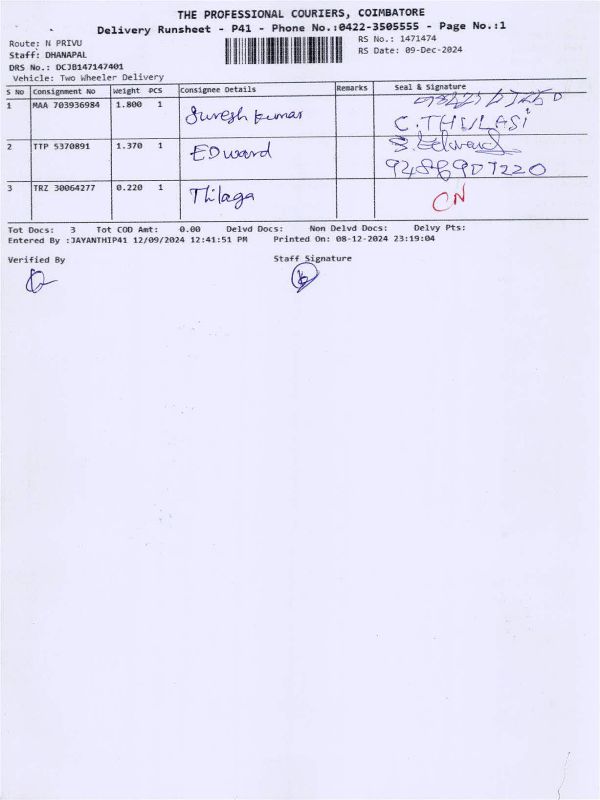 THE PROFESSIONAL COURIERS, COIMBATORE
Delivery Runsheet - P41 - Phone No.:0422-3505555 - Page No.:1
Route: N PRIVU
RS No.: 1471474
Staff: DHANAPAL
RS Date: 09-Dec-2024
DRS No.: DCJB147147401
Vehicle: Two Wheeler Delivery
S No Consignment No Weight PCS Consignee Details Remarks Seal & Signature
1 MAA 703936984 1.800 1 Suresh kumar
C.THULASi
2 TTP 5370891 1.370 1 EDward S. Edward
9486907220
3 TRZ 30064277 0.220 1 Thilaga CN
Tot Docs: 3 Tot COD Amt: 0.00 Delvd Docs: Non Delvd Docs: Delvy Pts:
Entered By :JAYANTHIP41 12/09/2024 12:41:51 PM Printed On: 08-12-2024 23:19:04
Verified By Staff Signature